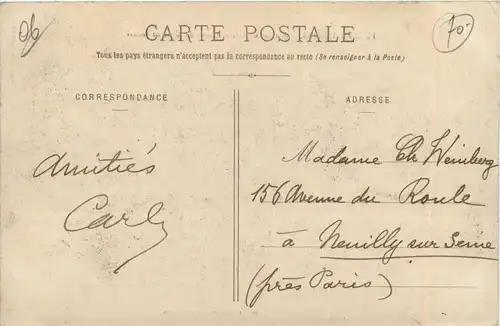 06
70-
CARTE POSTALE
Tous les pays étrangers n'acceptent pas la correspondance au recto (Se renseigner à la Poste)
CORRESPONDANCE
Amitiés
Carly
ADRESSE
Madame Ch Weinberg
156 Avenue du Roule
à Neuilly sur Seine
(près Paris)